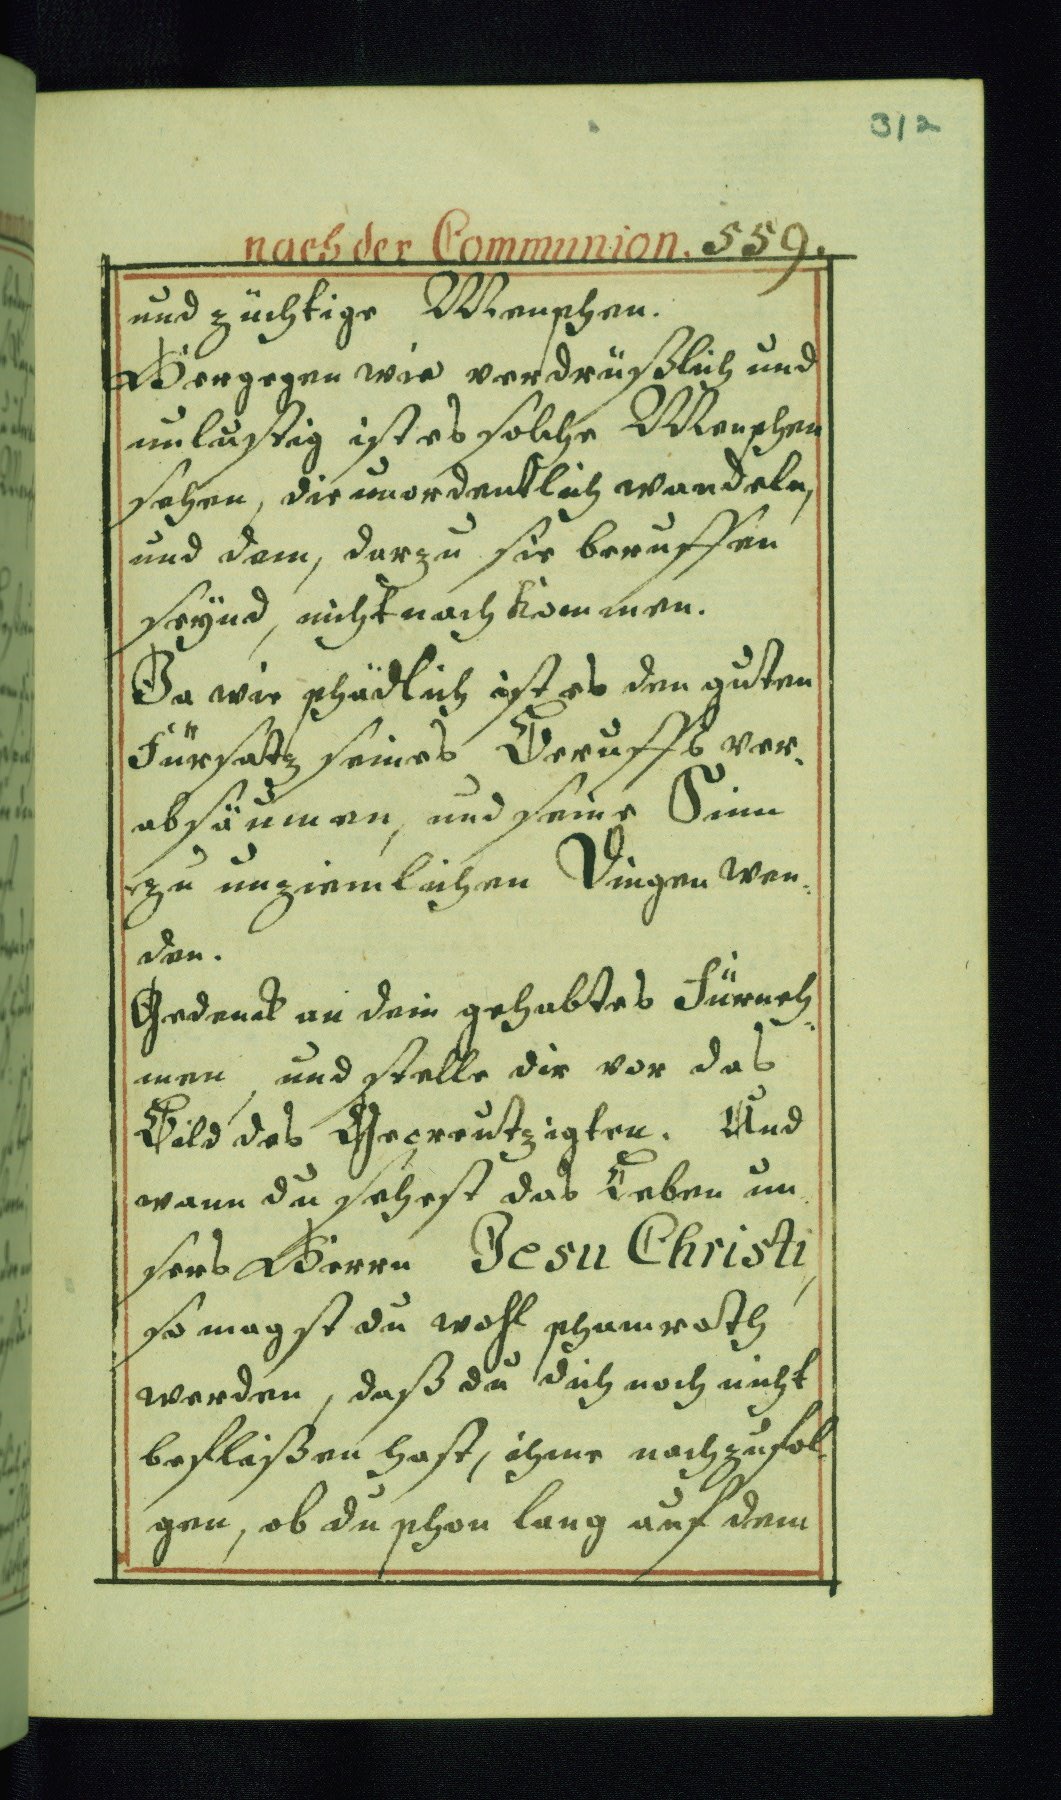 312
nach der Communion. 559.
und züchtige Menschen.
Hergegen wie verdrüßlich und
unlustig ist es solche Menschen
sehen, die unordentlich wandeln,
und dem, darzu sie beruffen
seynd, nicht nach kommen.
Ja wie schädlich ist es den guten
Fürsatz seines Beruffs ver-
absäumen, und seine Sinn
zu unziemlichen Dingen wen-
den.
Gedenck an dein gehabtes Fürneh-
men, und stelle dir vor das
Bild des Gecreutzigten. Und
wann du sehest das Leben un-
sers Herrn Jesu Christi,
so magst du wohl schamroth
werden, daß du dich noch nicht
beflißen hast, ihme nachzufol-
gen, ob du schon lang auf dem